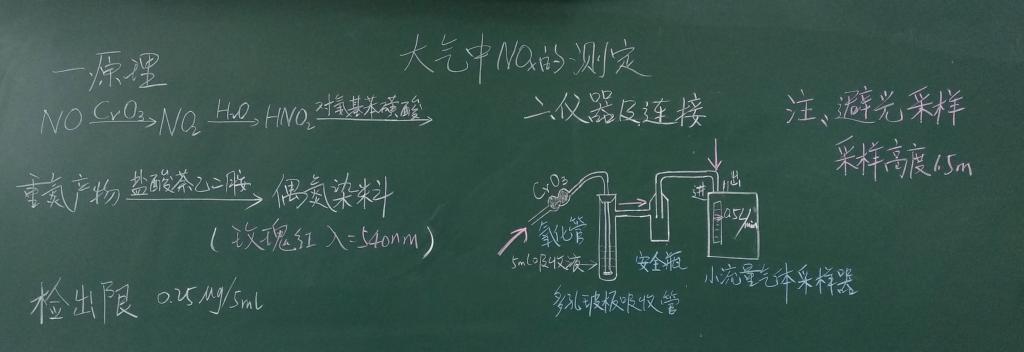 大气中NOx的测定
一原理
NO CrO3 NO2 H2O HNO2 对氨基苯磺酸
重氮产物 盐酸萘乙二胺 偶氮染料
(玫瑰红 λ=540nm)
检出限 0.25μg/5ml
二仪器及连接
CrO3
氧化管
5ml吸收液
多孔玻板吸收管
安全瓶
进
出
0.5L/min
小流量气体采样器
注、避光采样
采样高度1.5m